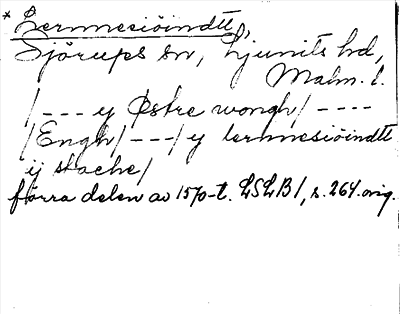 * Lermmesiöindtt,
Sjörups sn, Ljunits hd,
Malm. l.
/--- y Østre wongh/ ----
/Engh/ ---/ y lermmesiöindtt
ij stache/
förra delen av 1570-t. LSLB1, s. 264. orig.